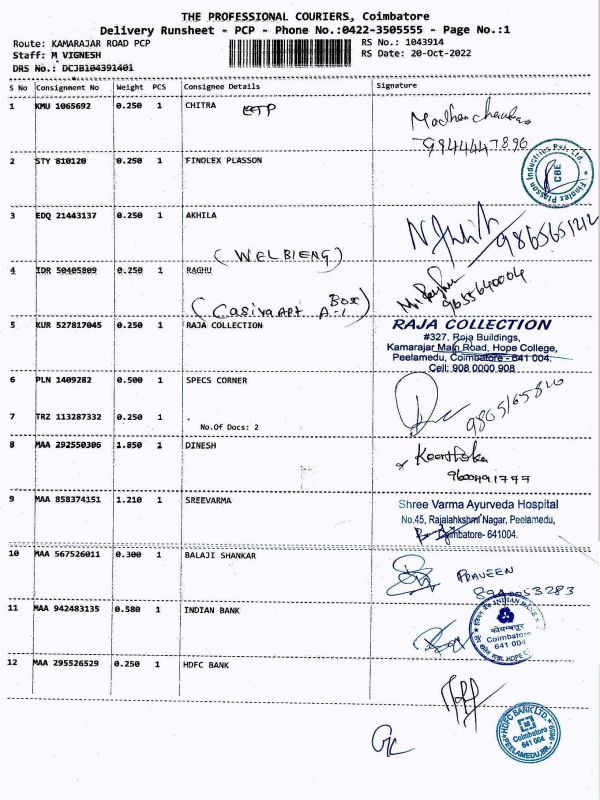 THE PROFESSIONAL COURIERS, Coimbatore
Delivery Runsheet - PCP - Phone No.:0422-3505555 - Page No.:1
Route: KAMARAJAR ROAD PCP
RS No.: 1043914
Staff: M VIGNESH
RS Date: 20-Oct-2022
DRS No.: DCJB104391401
S No Consignment No Weight PCS Consignee Details Signature
1 KMU 1065692 0.250 1 CHITRA
9944447896
2 STY 810120 0.250 1 FINOLEX PLASSON
Finolex Plasson Industries Pvt. Ltd.
CBE
3 EDQ 21443137 0.250 1 AKHILA
(WELBIENG)
4 IDR 50405809 0.250 1 RAGHU
9655640004
(Casiva APt A-1 Box)
5 KUR 527817045 0.250 1 RAJA COLLECTION
RAJA COLLECTION
#327, Roja Buildings,
Kamarajar Main Road, Hope College,
Peelamedu, Coimbatore - 641 004.
Cell: 908 0000 908
6 PLN 1409282 0.500 1 SPECS CORNER
7 TRZ 113287332 0.250 1 .
No.Of Docs: 2
8 MAA 292550306 1.850 1 DINESH
9600491777
9 MAA 858374151 1.210 1 SREEVARMA
Shree Varma Ayurveda Hospital
No.45, Rajalahkshmi Nagar, Peelamedu,
Coimbatore- 641004.
10 MAA 567526011 0.300 1 BALAJI SHANKAR
PRAVEEN
11 MAA 942483135 0.580 1 INDIAN BANK
INDIAN BANK
कोयम्बत्तूर
Coimbatore
641 004
12 MAA 295526529 0.250 1 HDFC BANK
HDFC BANK LTD.
Coimbatore
641 004
PEELAMEDU.BR.